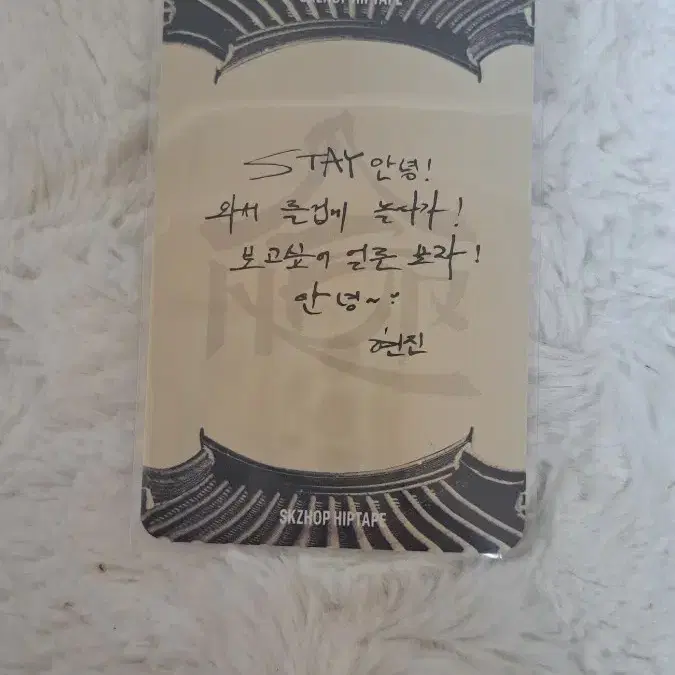 SKZHOP HIPTAPE
STAY 안녕!
와서 즐겁게 놀다가!
보고싶어 얼른 보자!
안녕~
현진
SKZHOP HIPTAPE